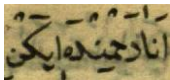 انا رحمینده ایكن